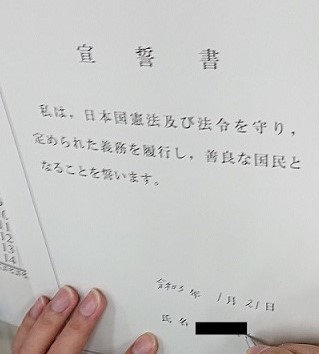 宣誓書
私は，日本国憲法及び法令を守り，
定められた義務を履行し，善良な国民と
なることを誓います。
令和5年 1月21日
氏名
11
12
13
14